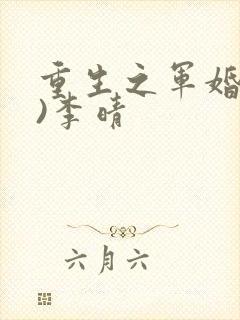 重生之军婚
)李晴
六月六